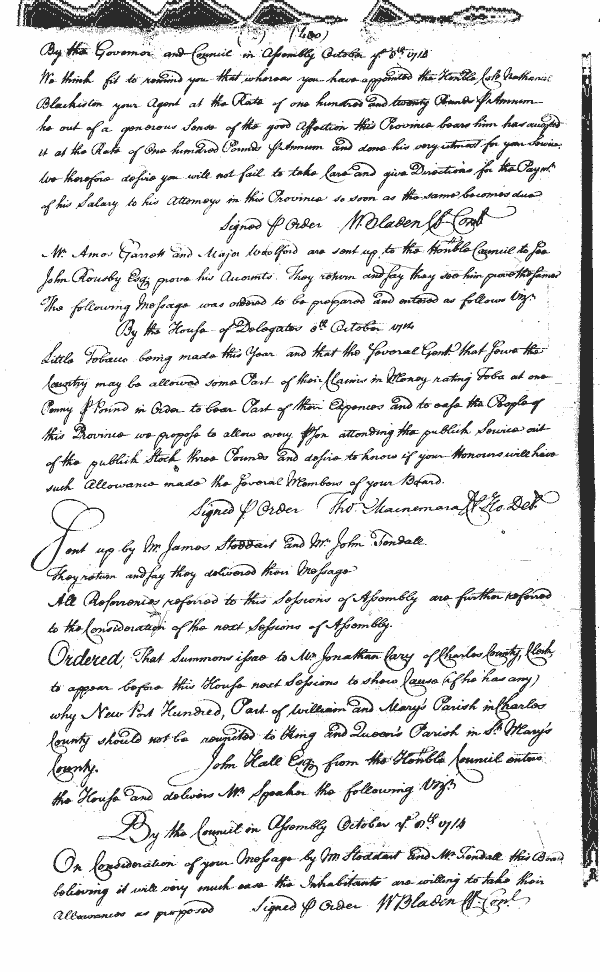 (400)
By the Governor and Council in Assembly October ye 8th 1714
We think fit to remind you that whereas you have appointed the Honble Colo Nathaniel
Blackiston your Agent at the Rate of one hundred and twenty Pounds P Annum
he out of a generous Sense of the good Affection this Province bears him has accepted
it at the Rate of One hundred Pounds P Annum and done his very utmost for your Service
We therefore desire you will not fail to take Care and give Directions for the Paymt
of his Salary to his Attorneys in this Province so soon as the same becomes due
Signed P Order W. Bladen Cl Concl
Mr Amos Garrett and Major Woolford are sent up to the Honble Council to see
John Rousby Esqr prove his Accounts. They return and say they see him prove the same
The following Message was ordered to be prepared and entered as follows Vizt
By the House of Delegates 8th October 1714
Little Tobacco being made this Year and that the several Gentn that serve the
Country may be allowed some Part of their Claims in Money rating Tobo at one
Penny P Pound in Order to bear Part of their Expences and to ease the People of
this Province we propose to allow every Pson attending the publick Service out
of the publick Stock three Pounds and desire to know if your Honours will have
such Allowance made the several Members of your Board.
Signed P Order Tho. Macnemara Cl Ho. Del.
Sent up by Mr James Stoddart and Mr John Fendall.
They return and say they delivered their Message
All References referred to this Sessions of Assembly are further referred
to the Consideration of the next Sessions of Assembly.
Ordered, That Summons issue to Mr Jonathan Cary of Charles County, Clerk,
to appear before this House next Sessions to show Cause (if he has any)
why New Port Hundred, Part of William and Mary's Parish in Charles
County should not be reunited to King and Queen's Parish in St Mary's
County. John Hall Esqr from the Honble Council enters
the House and delivers Mr Speaker the following Vizt
By the Council in Assembly October ye 8th 1714
On Consideration of your Message by Mr Stoddart and Mr Fendall this Board
believing it will very much ease the Inhabitants are willing to take their
Allowances as proposed Signed P Order W Bladen Cl. Concl